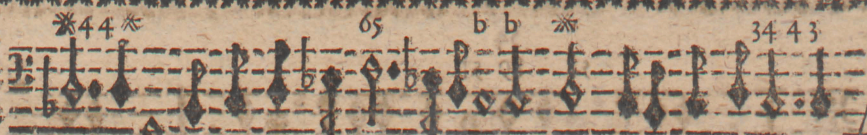 ※ 4 4 ※ 65 b b ※ 34 4 3